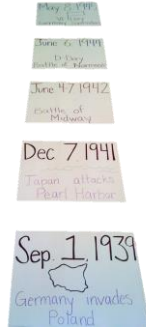 May 8, 194
June 6, 1944
D Day
Battle of Normandy
June 4-7 1942
Battle of
Midway
Dec 7 1941
Japan attacks
Pearl Harbor
Sep. 1, 1939
Germany invades
Poland